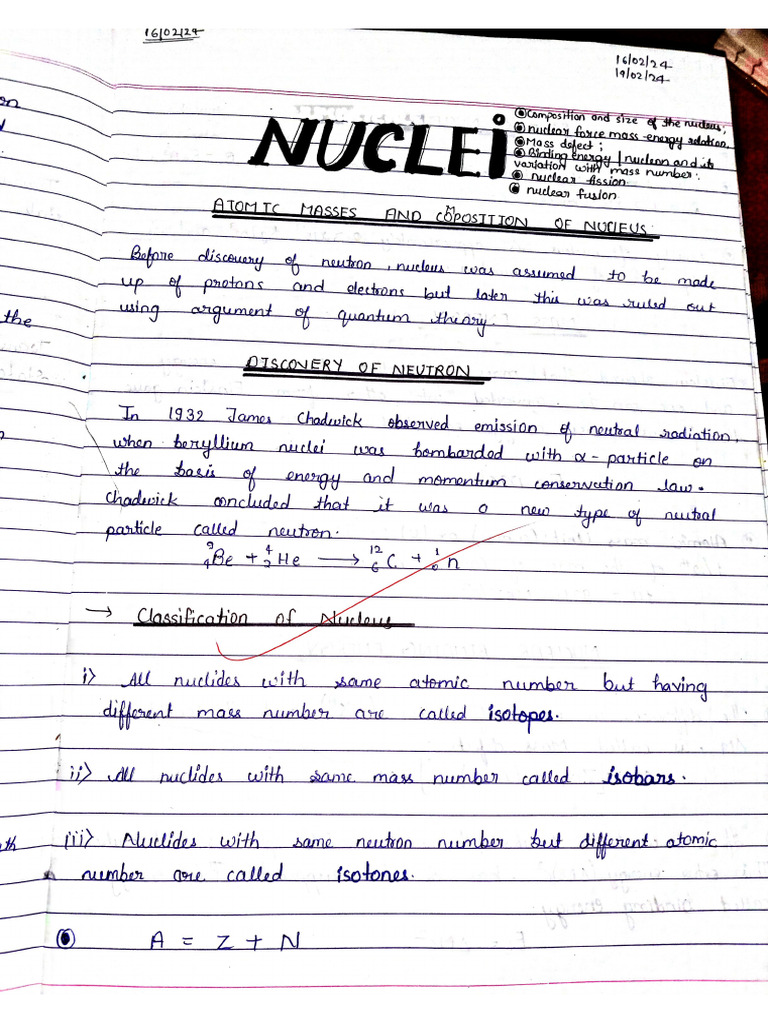 16/02/24
16/02/24
19/02/24
NUCLEi
Composition and size of the nucleus;
nuclear force mass-energy relation,
Mass defect;
Binding energy / nucleon and its
variation with mass number.
nuclear fission
nuclear fusion
ATOMIC MASSES AND COMPOSITION OF NUCLEUS:
Before discovery of neutron, nucleus was assumed to be made
up of protons and electrons but later this was ruled out
using argument of quantum theory.
DISCOVERY OF NEUTRON
In 1932 James Chadwick observed emission of neutral radiation,
when beryllium nuclei was bombarded with α-particle on
the basis of energy and momentum conservation law.
Chadwick concluded that it was a new type of neutral
particle called neutron.
⁹₄Be + ⁴₂He → ¹²₆C + ¹₀n
→ Classification of Nucleus
i) All nuclides with same atomic number but having
different mass number are called isotopes.
ii) All nuclides with same mass number called isobars.
iii) Nuclides with same neutron number but different atomic
number are called isotones.
A = Z + N
the